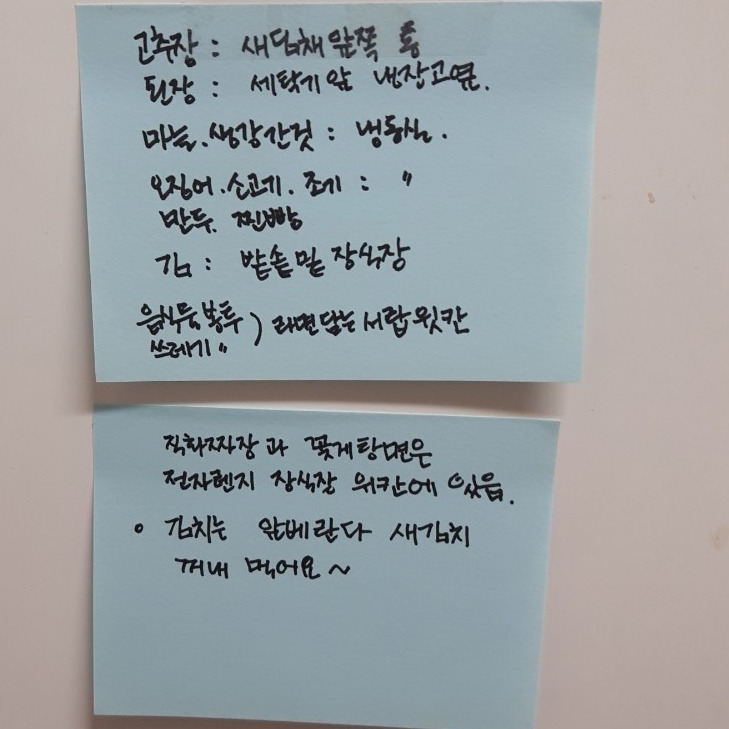 고추장 : 새담채앞쪽 통
된장 : 세탁기앞 냉장고옆.
마늘.생강간것 : 냉동실.
오징어.소고기.조기 : "
만두. 찐빵
김 : 밭솥밑 장식장
음식물봉투 ) 라면담는서랍윗칸
쓰레기 "
직화짜장과 꽃게탕면은
전자렌지 장식잘 위칸에 있읍.
• 김치는 앞베란다 새김치
꺼내 먹어요~